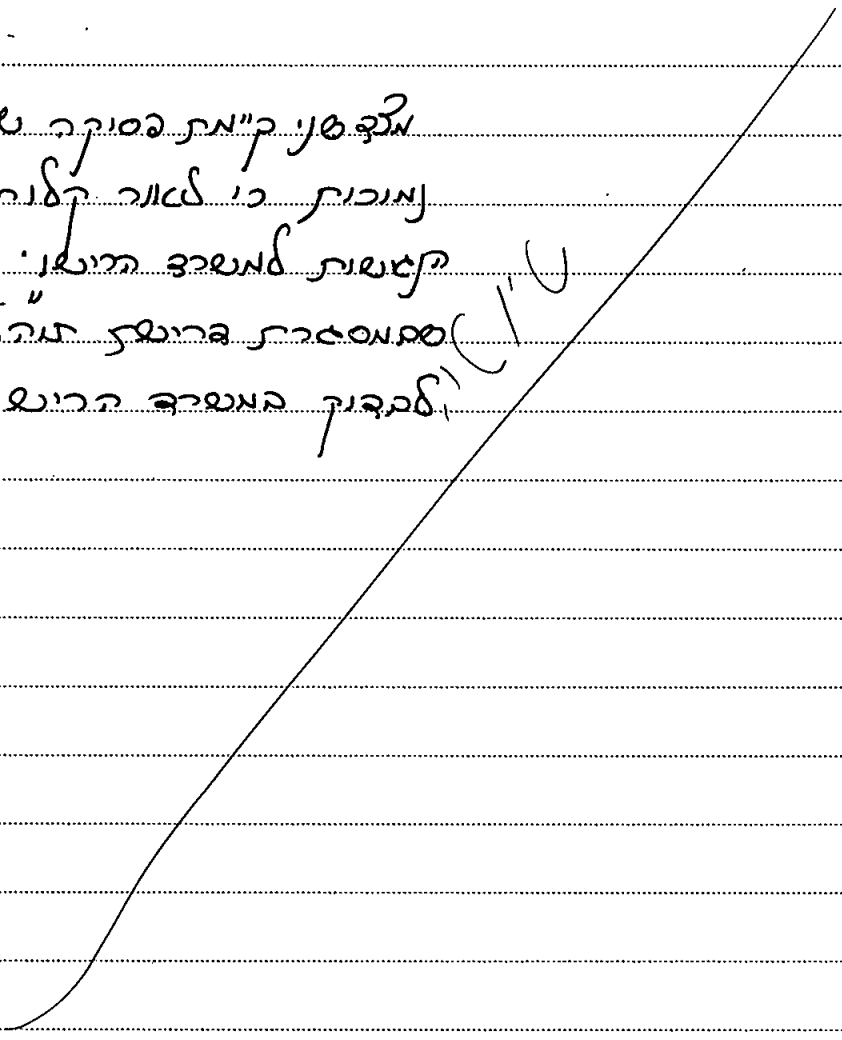 מצד שני קיימת פסיקה
נמוכות כי לאור קלות
הנגישות למשרד הרישוי
שבמסגרת דרישת תוה"
לבדוק במשרד הריש